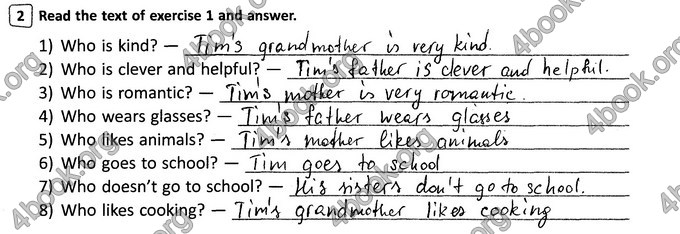 2 Read the text of exercise 1 and answer.
1) Who is kind? — Tim's grandmother is very kind.
2) Who is clever and helpful? — Tim's father is clever and helpful.
3) Who is romantic? — Tim's mother is very romantic.
4) Who wears glasses? — Tim's father wears glasses
5) Who likes animals? — Tim's mother likes animals
6) Who goes to school? — Tim goes to school
7) Who doesn't go to school? — His sisters don't go to school.
8) Who likes cooking? — Tim's grandmother likes cooking
4book.org
4book.org
4book.org
4book.org
4book.org
4book.org